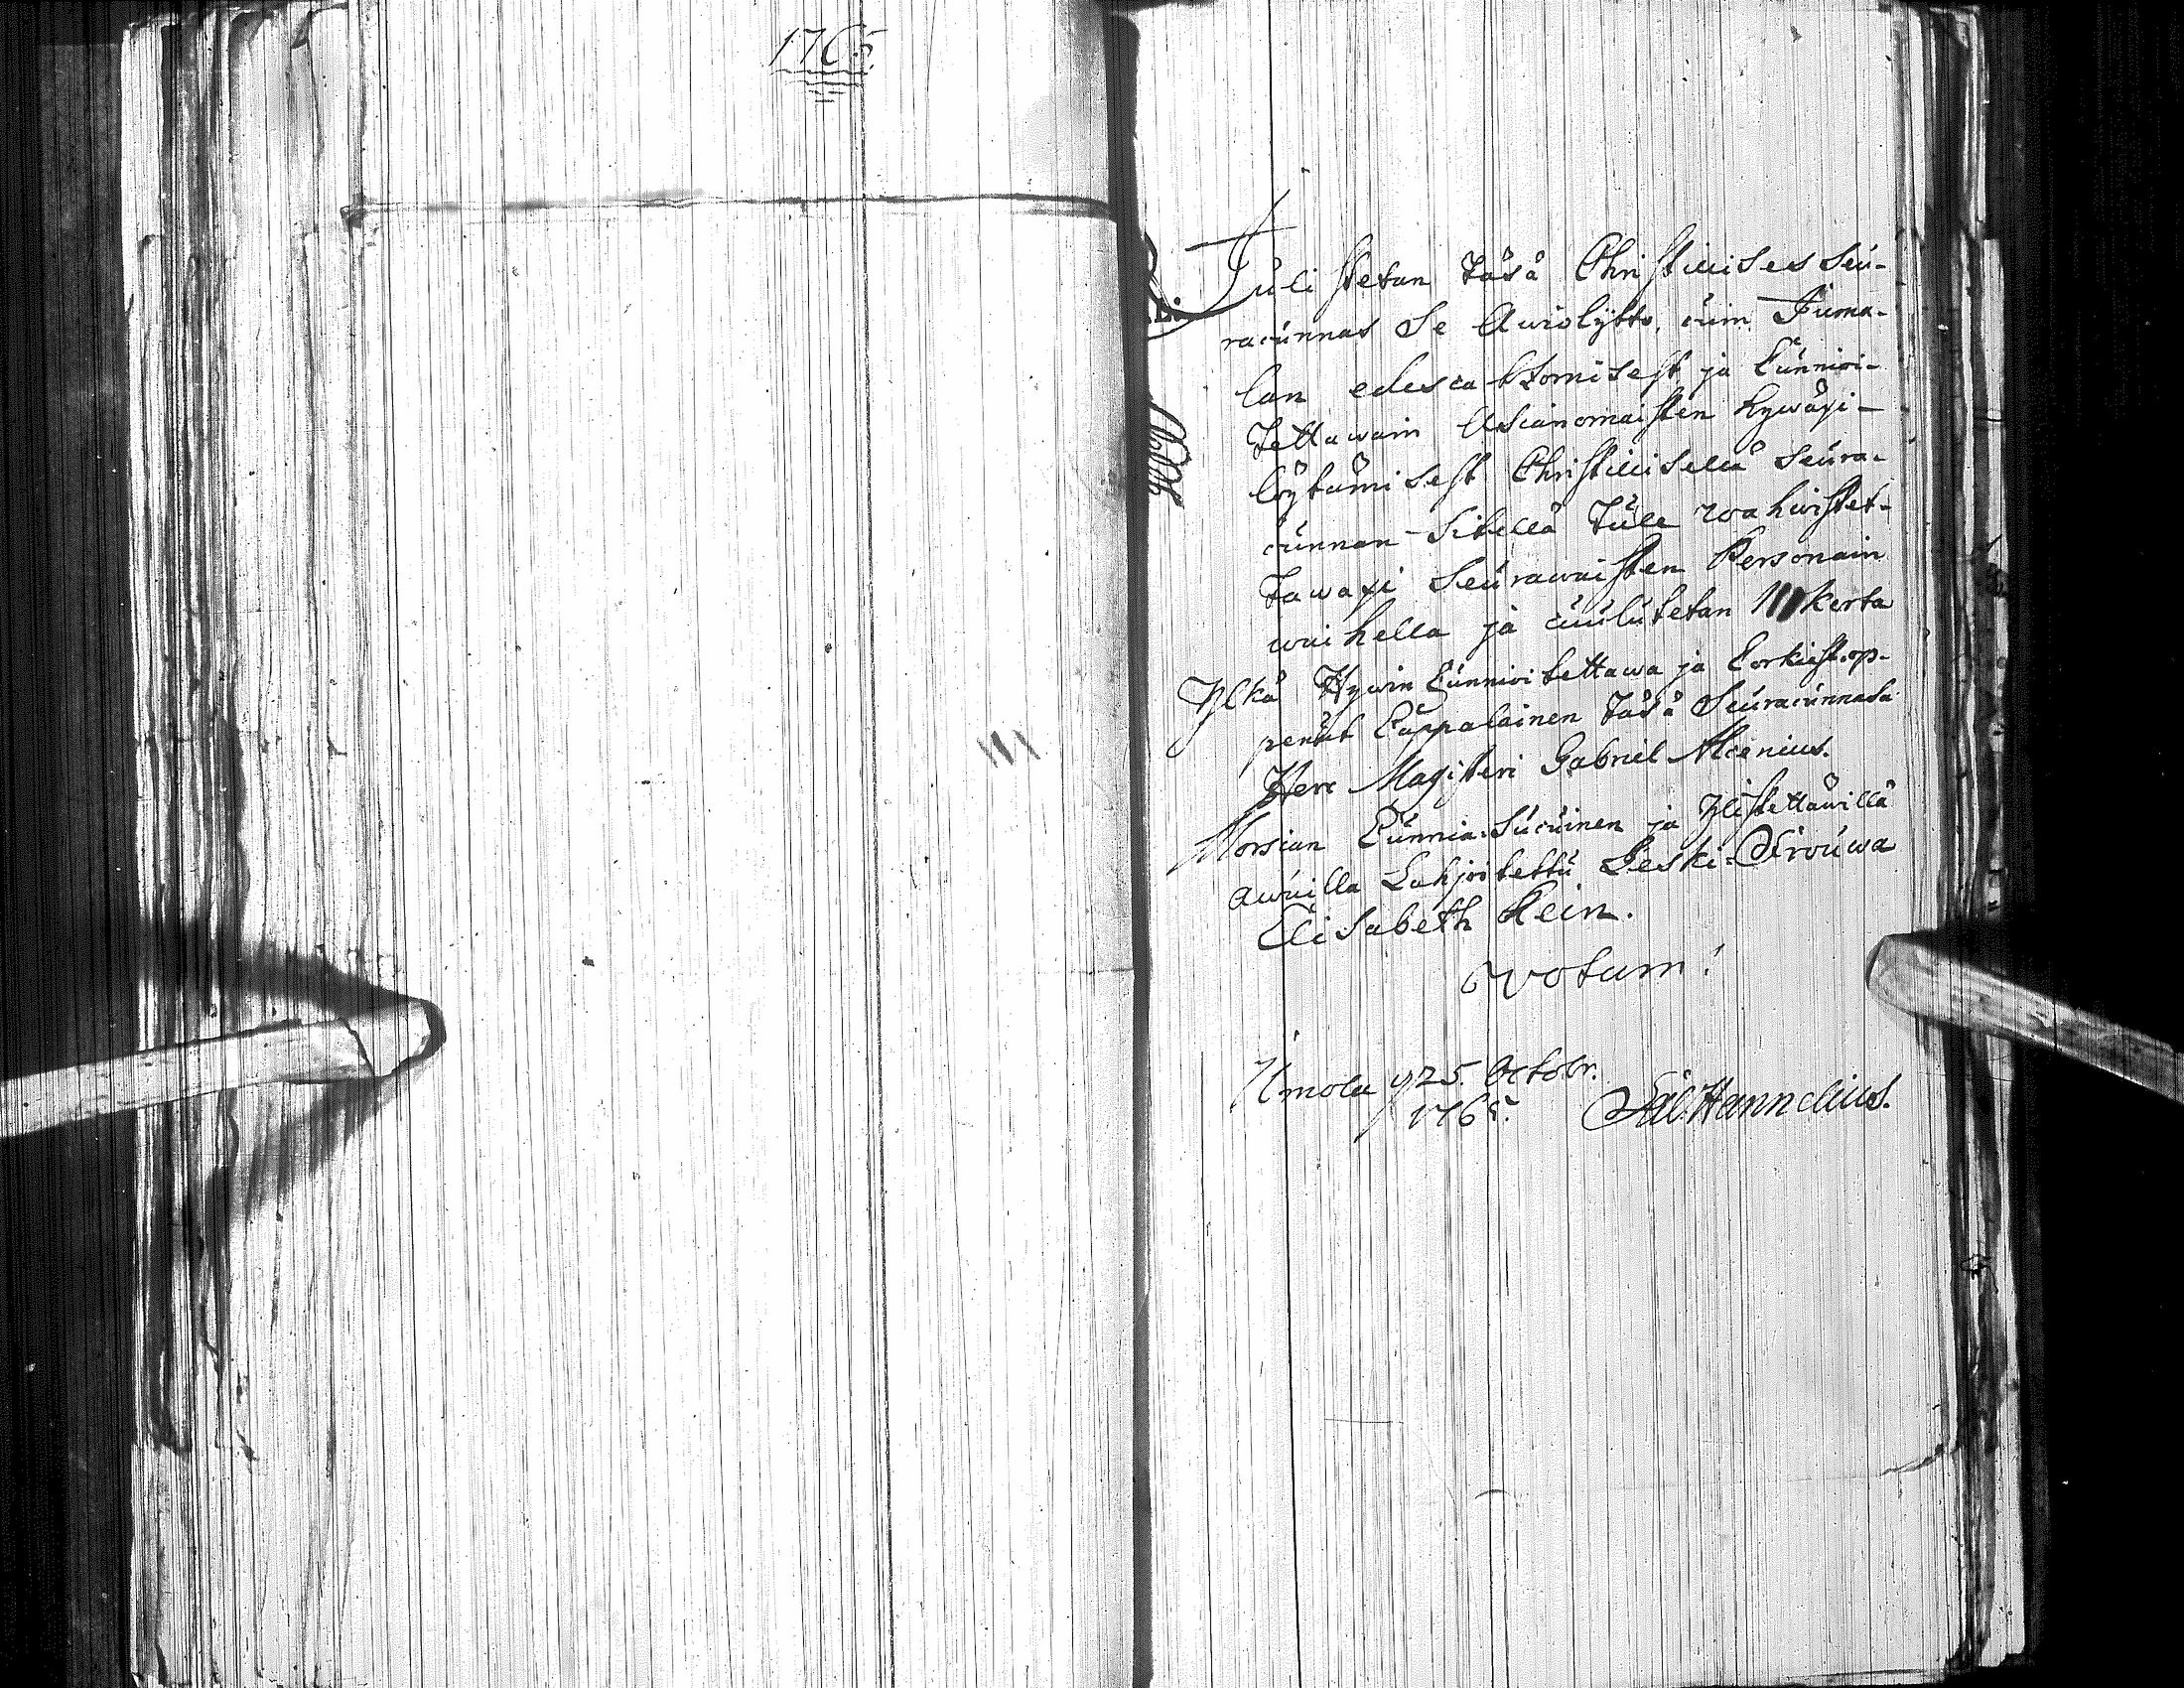 1765
Julistetan täsä Christillises Seu-
racunnas Se Awiolijtto, cuin Juma-
lan edescatzomisest ja Cunnioi-
tettawain Asianomaisten hywäxi-
löytämisest Christillisellä Seura-
cunnan-Sitellä tule wahwistet-
tawaxi Seurawaisten Personain
waihella ja cuulutetan III kerta
Ylkä Hywin Cunnioitettawa ja Corkiast op-
penut Cappalainen täsä Seuracunnasa
Herr Magisteri Gabriel Alcenius.
Morsian Cunnia-Sucuinen ja ylistettäwillä
awuilla Lahjoitettu Leski-Frouwa
Elisabeth Kein.
Votum!
Umola 25. Octobr.
1765.
Hannelius.